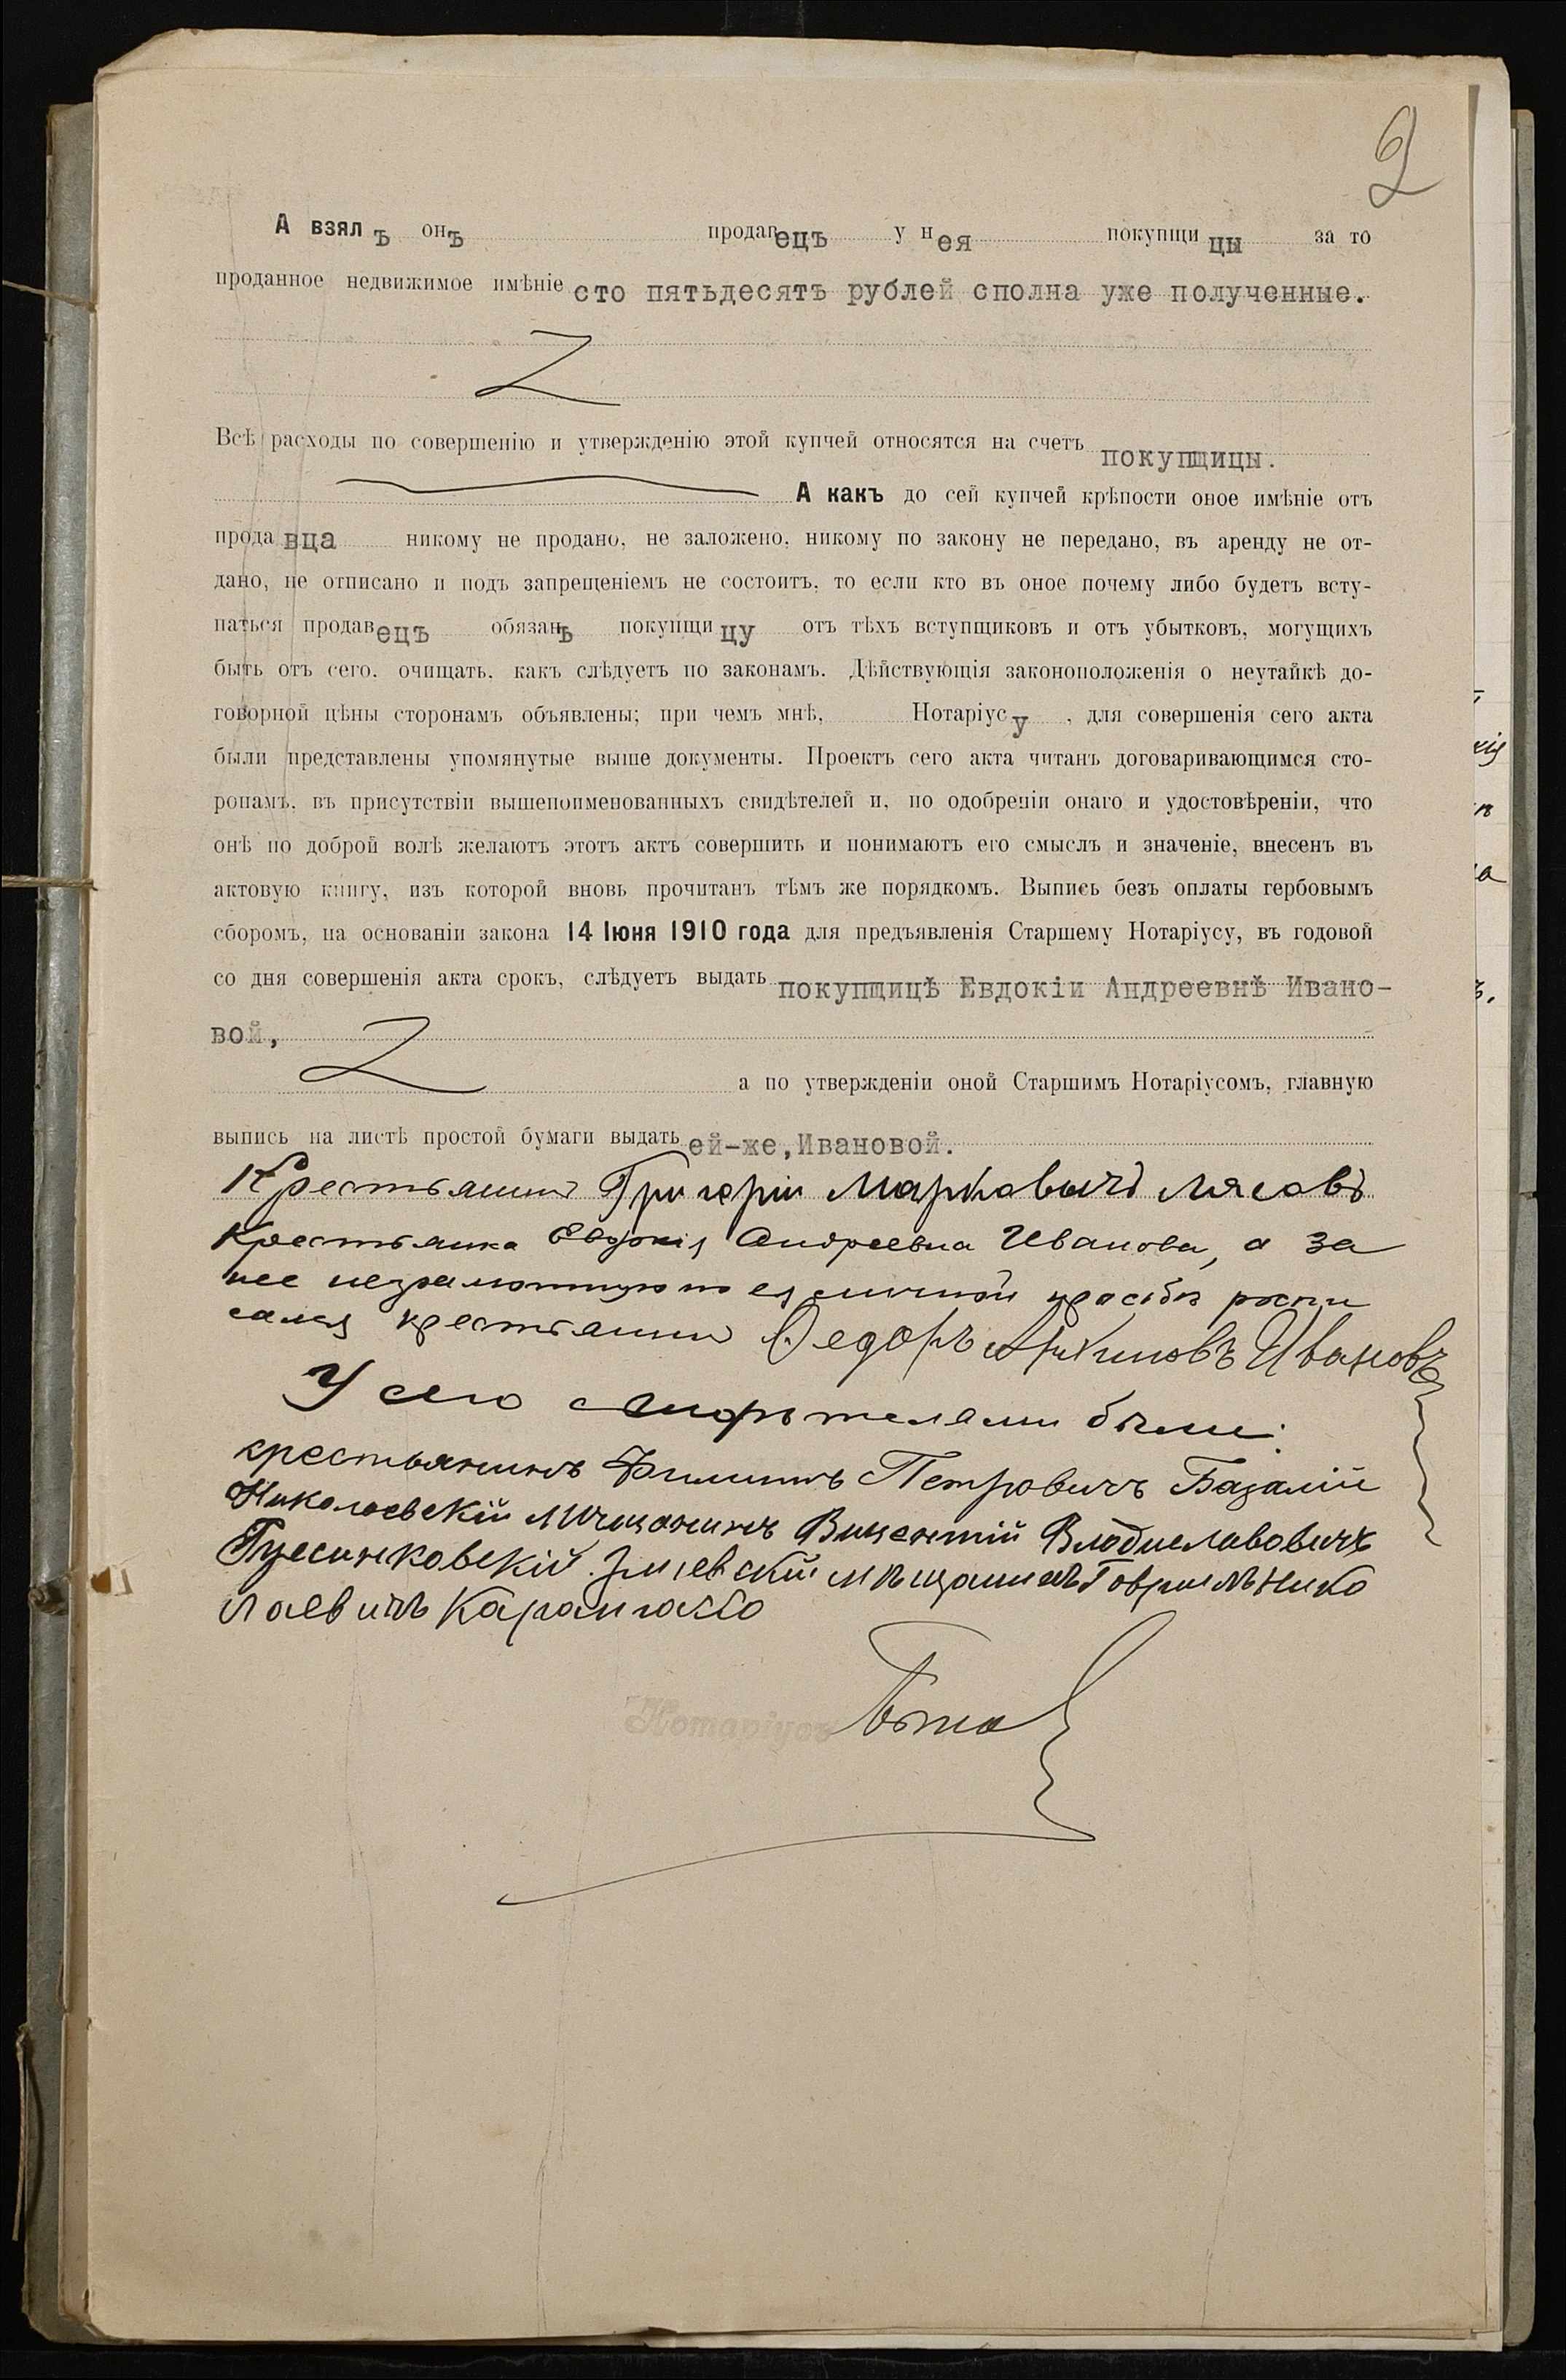 2
А взялъ онъ продавецъ у нея покупщицы за то
проданное недвижимое имѣніе сто пятьдесятъ рублей сполна уже полученные.
Всѣ расходы по совершенію и утвержденію этой купчей относятся на счетъ покупщицы.
А какъ до сей купчей крѣпости оное имѣніе отъ
продавца никому не продано, не заложено, никому по закону не передано, въ аренду не от-
дано, не отписано и подъ запрещеніемъ не состоитъ, то если кто въ оное почему либо будетъ всту-
паться продавецъ обязанъ покупщицу отъ тѣхъ вступщиковъ и отъ убытковъ, могущихъ
быть отъ сего, очищать, какъ слѣдуетъ по законамъ. Дѣйствующія законоположенія о неутайкѣ до-
говорной цѣны сторонамъ объявлены; при чемъ мнѣ, Нотаріусу, для совершенія сего акта
были представлены упомянутые выше документы. Проектъ сего акта читанъ договаривающимся сто-
ронамъ, въ присутствіи вышепоименованныхъ свидѣтелей и, по одобреніи онаго и удостовѣреніи, что
онѣ по доброй волѣ желаютъ этотъ актъ совершить и понимаютъ его смыслъ и значеніе, внесенъ въ
актовую книгу, изъ которой вновь прочитанъ тѣмъ же порядкомъ. Выпись безъ оплаты гербовымъ
сборомъ, на основаніи закона 14 Іюня 1910 года для предъявленія Старшему Нотаріусу, въ годовой
со дня совершенія акта срокъ, слѣдуетъ выдать покупщицѣ Евдокіи Андреевнѣ Ивано-
вой,
а по утвержденіи оной Старшимъ Нотаріусомъ, главную
выпись на листѣ простой бумаги выдать ей-же, Ивановой.
Крестьянинъ Григорій Марковичъ Лясовъ
Крестьянка Евдокія Андреевна Иванова, а за
нее неграмотную по ея личной просьбѣ роспи
сался крестьянинъ Федоръ Архиповъ Ивановъ
У сего свидѣтелями были:
крестьянинъ Филиппъ Петровичъ Базалій
Николаевскій мѣщанинъ Викентій Владиславовичъ
мѣщанинъ Гавріилъ Нико
лаевичъ
Нотаріусъ